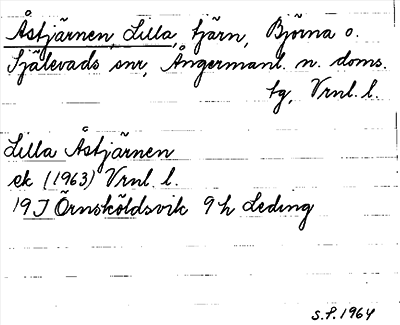 Åstjärnen, Lilla, tjärn, Björna o.
Själevads snr, Ångermanl. n. doms.
tg, Vrnl. l.
Lilla Åstjärnen
ek (1963) Vrnl. l.
19 J Örnsköldsvik 9 h Leding
S.F. 1964